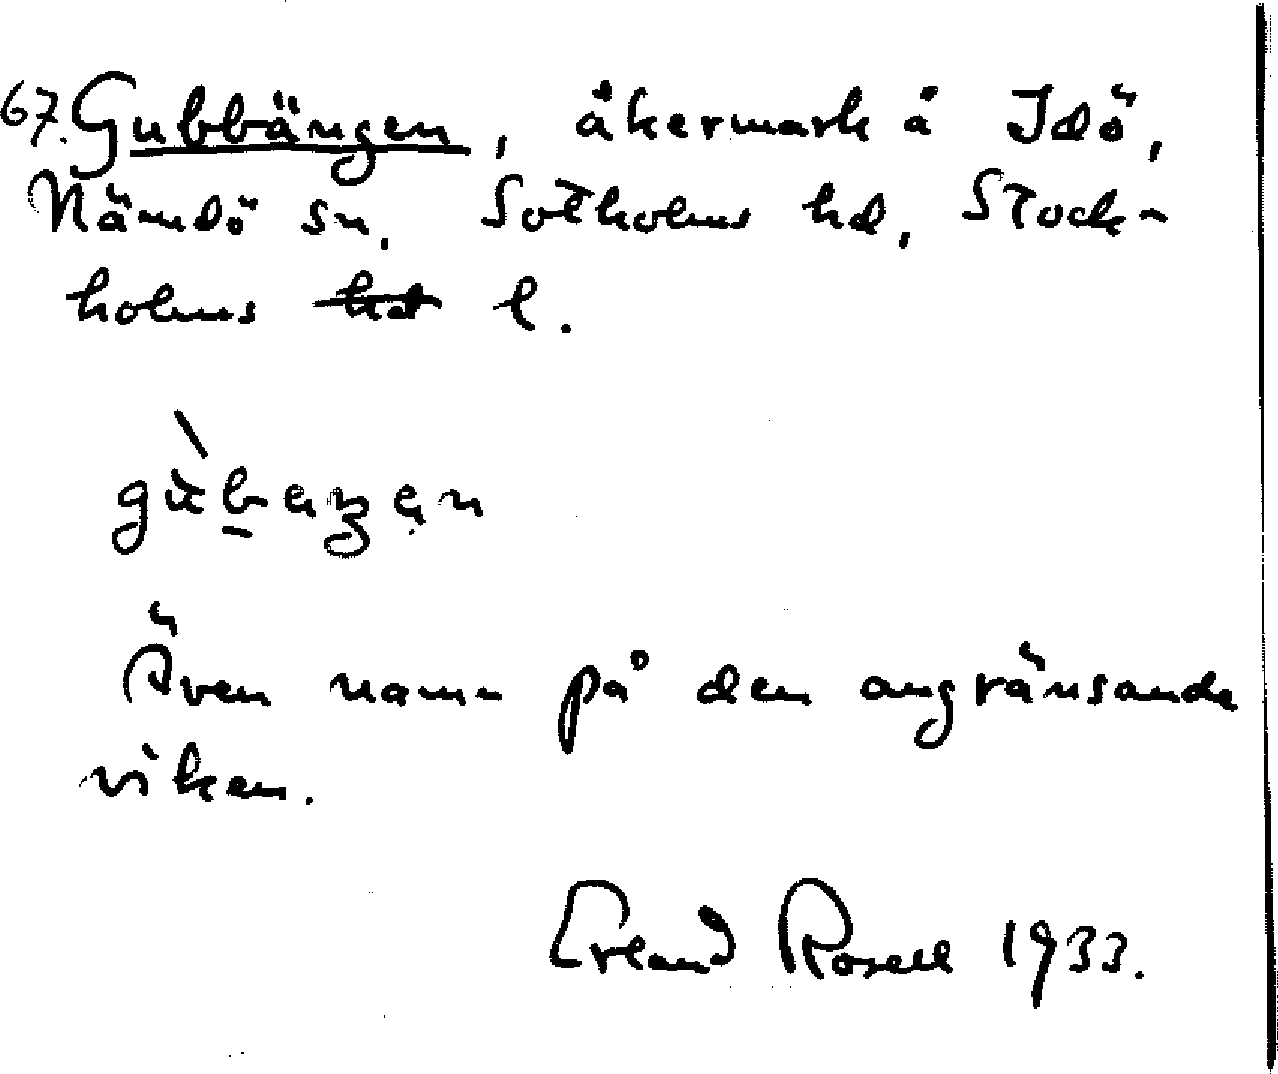 67. Gubbängen, åkermark å Idö,
Nämdö sn, Sotholms hd, Stock-
holms hd l.
gùbaŋən
Även namn på den angränsande
viken.
Erland Rosell 1933.